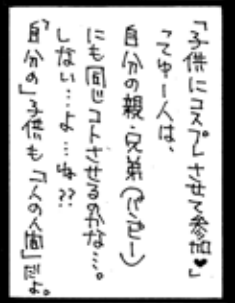 「子供にコスプレさせて参加♥」
ってゆー人は、
自分の親・兄弟(パンピー)
にも同じコトさせるのかな…。
しない…よ…ね??
「自分の」子供も「1人の人間」だよ。